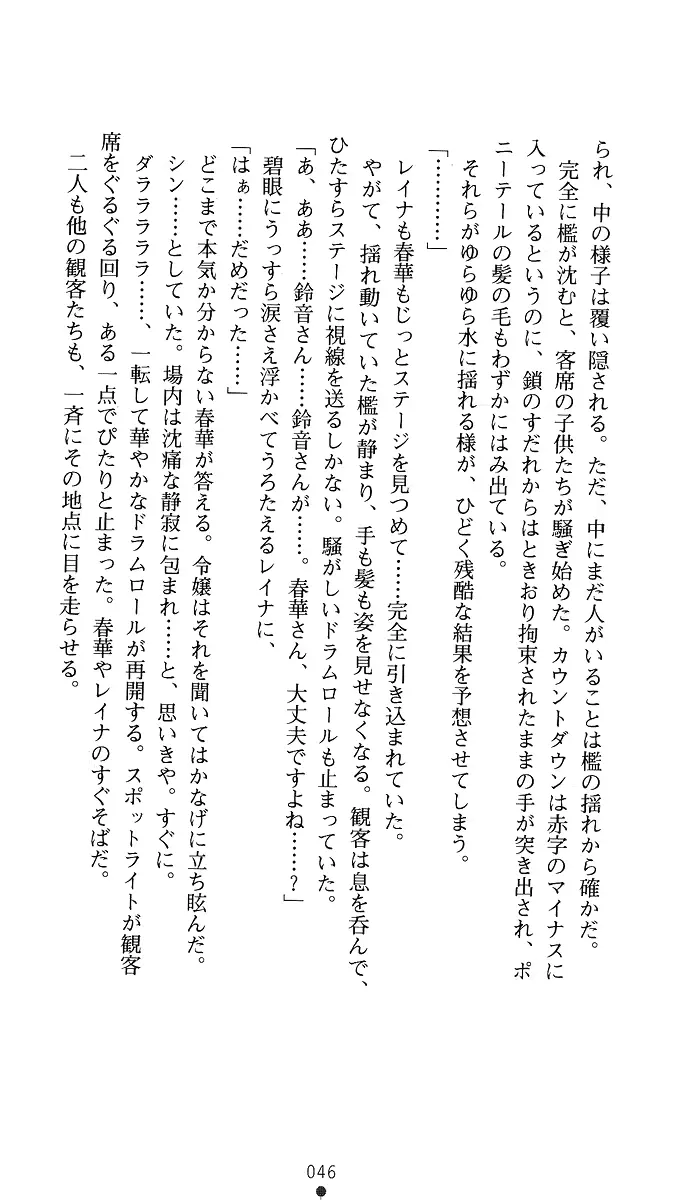 られ、中の様子は覆い隠される。ただ、中にまだ人がいることは檻の揺れから確かだ。
　完全に檻が沈むと、客席の子供たちが騒ぎ始めた。カウントダウンは赤字のマイナスに
入っているというのに、鎖のすだれからはときおり拘束されたままの手が突き出され、ポ
ニーテールの髪の毛もわずかにはみ出ている。
　それらがゆらゆら水に揺れる様が、ひどく残酷な結果を予想させてしまう。
「…………」
　レイナも春華もじっとステージを見つめて……完全に引き込まれていた。
　やがて、揺れ動いていた檻が静まり、手も髪も姿を見せなくなる。観客は息を呑んで、
ひたすらステージに視線を送るしかない。騒がしいドラムロールも止まっていた。
「あ、ああ……鈴音さん……鈴音さんが……。春華さん、大丈夫ですよね……？」
　碧眼にうっすら涙さえ浮かべてうろたえるレイナに、
「はぁ……だめだった……」
　どこまで本気か分からない春華が答える。令嬢はそれを聞いてはかなげに立ち眩んだ。
　シン……としていた。場内は沈痛な静寂に包まれ……と、思いきや。すぐに。
　ダララララ……、一転して華やかなドラムロールが再開する。スポットライトが観客
席をぐるぐる回り、ある一点でぴたりと止まった。春華やレイナのすぐそばだ。
　二人も他の観客たちも、一斉にその地点に目を走らせる。
046